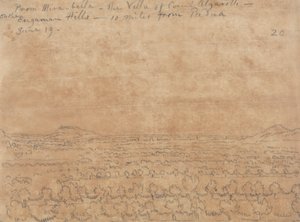 From Mira-bella - the Villa of Count Algarotti -
Euganean Hills - 10 miles from Padua
June 19.
20